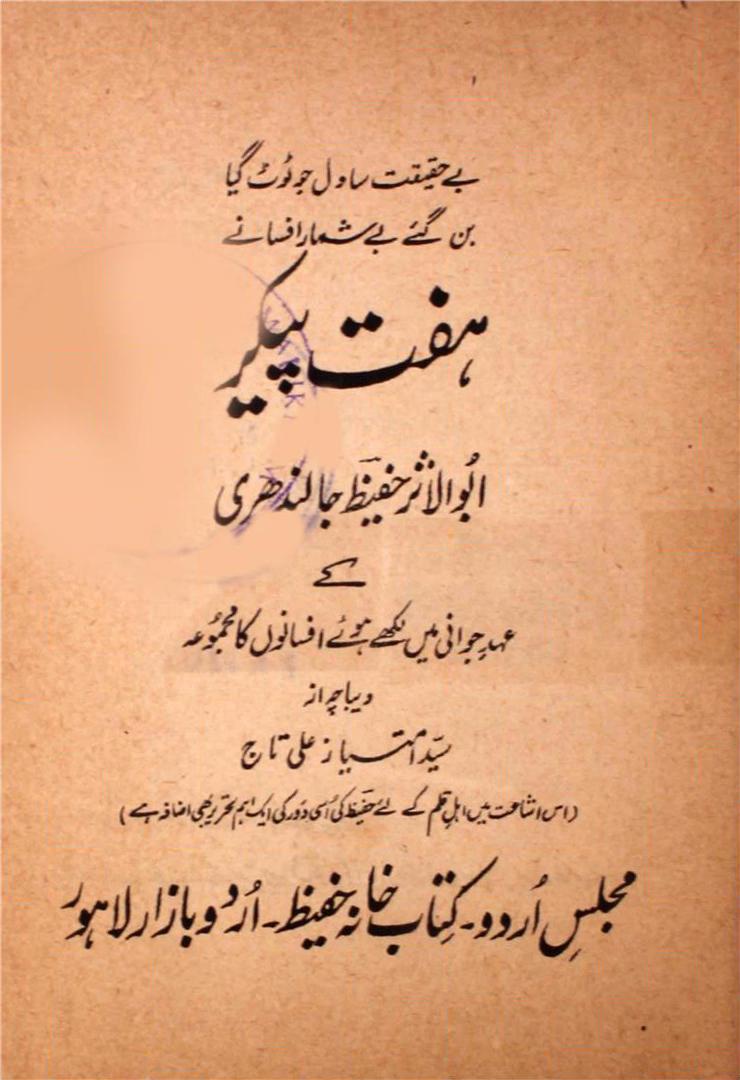 بے حقیقت سا دل جو ٹوٹ گیا
بن گئے بے شمار افسانے
ہفت پیکر
ابوالاثر حفیظ جالندھری
کے
عہدِ جوانی میں لکھے ہوئے افسانوں کا مجموعہ
دیباچہ از
سیّد امتیاز علی تاج
(اس اشاعت میں اہلِ قلم کے لئے حفیظ کی اُسی دَور کی ایک اہم تحریر بھی اضافہ ہے)
مجلسِ اُردو ۔ کِتاب خانہ حفیظ ۔ اُردو بازار لاہور